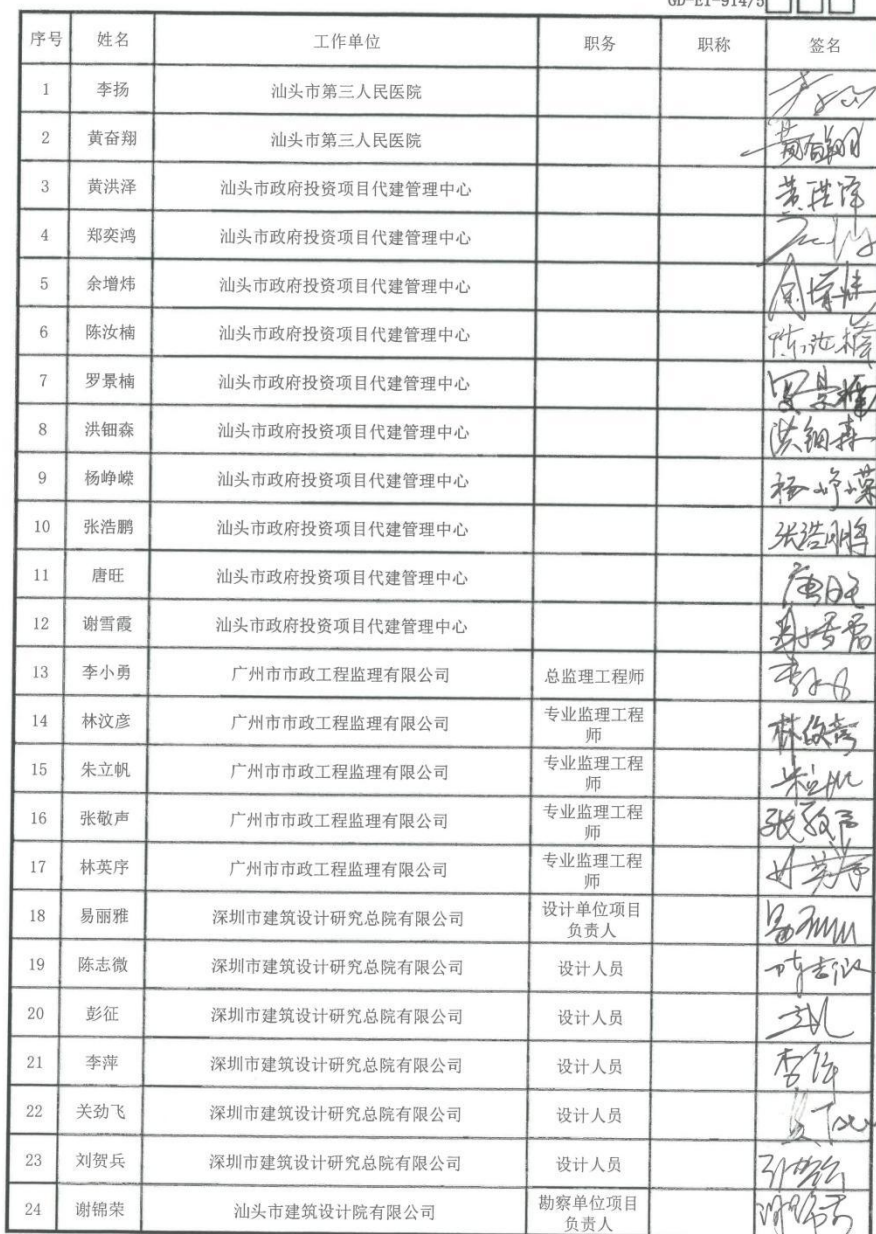 GD-E1-914/5
序号 姓名 工作单位 职务 职称 签名
1 李扬 汕头市第三人民医院
2 黄奋翔 汕头市第三人民医院
3 黄洪泽 汕头市政府投资项目代建管理中心 黄洪泽
4 郑奕鸿 汕头市政府投资项目代建管理中心
5 余增炜 汕头市政府投资项目代建管理中心 余增炜
6 陈汝楠 汕头市政府投资项目代建管理中心 陈汝楠
7 罗景楠 汕头市政府投资项目代建管理中心 罗景楠
8 洪钿森 汕头市政府投资项目代建管理中心 洪钿森
9 杨峥嵘 汕头市政府投资项目代建管理中心 杨峥嵘
10 张浩鹏 汕头市政府投资项目代建管理中心 张浩鹏
11 唐旺 汕头市政府投资项目代建管理中心 唐旺
12 谢雪霞 汕头市政府投资项目代建管理中心
13 李小勇 广州市市政工程监理有限公司 总监理工程师
14 林汶彦 广州市市政工程监理有限公司 专业监理工程
师
15 朱立帆 广州市市政工程监理有限公司 专业监理工程
师
16 张敬声 广州市市政工程监理有限公司 专业监理工程
师 张敬声
17 林英序 广州市市政工程监理有限公司 专业监理工程
师
18 易丽雅 深圳市建筑设计研究总院有限公司 设计单位项目
负责人
19 陈志微 深圳市建筑设计研究总院有限公司 设计人员 陈志微
20 彭征 深圳市建筑设计研究总院有限公司 设计人员
21 李萍 深圳市建筑设计研究总院有限公司 设计人员 李萍
22 关劲飞 深圳市建筑设计研究总院有限公司 设计人员
23 刘贺兵 深圳市建筑设计研究总院有限公司 设计人员
24 谢锦荣 汕头市建筑设计院有限公司 勘察单位项目
负责人